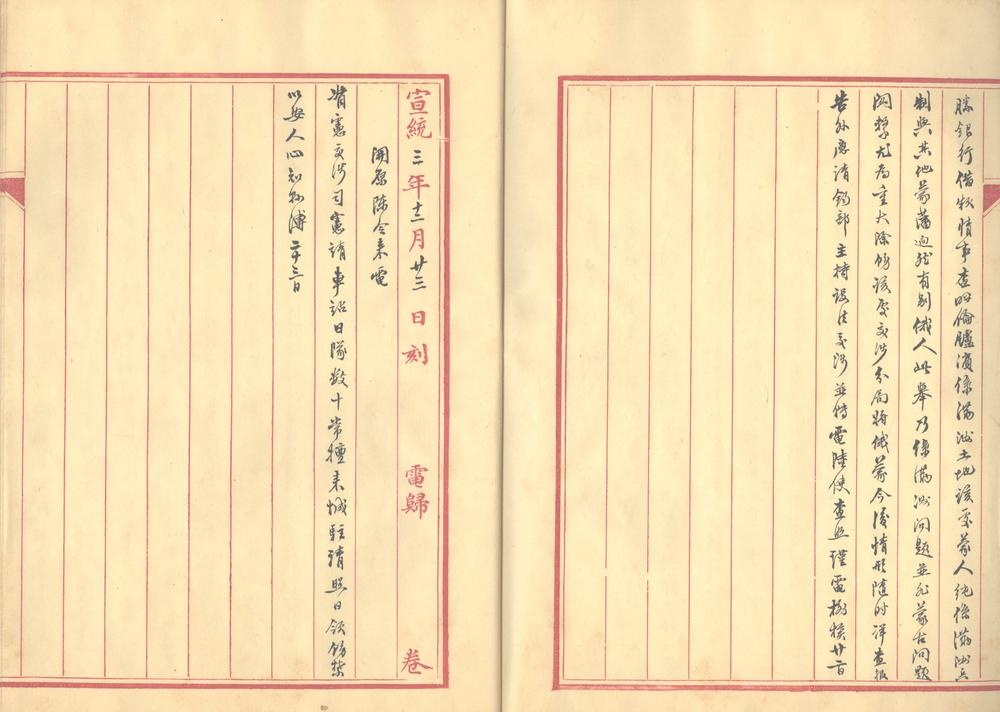 勝銀行借款情事查呼倫臚濱係滿洲土地該處蒙人純係滿洲兵
制與其他蒙藩迥然有別俄人此舉乃係滿洲問題並非蒙古問題
關繫尤為重大除飭該處交涉分局將俄蒙今後情形隨時詳查報
告外應請鈞部主持設法交涉並侍電陸使查照謹電
宣統三年十二月廿三日刻 電歸 卷
開原陳令來電
督憲交涉司憲請車站日隊數十常擅來城駐請照日領飭禁
以安人心知縣溥二十三日